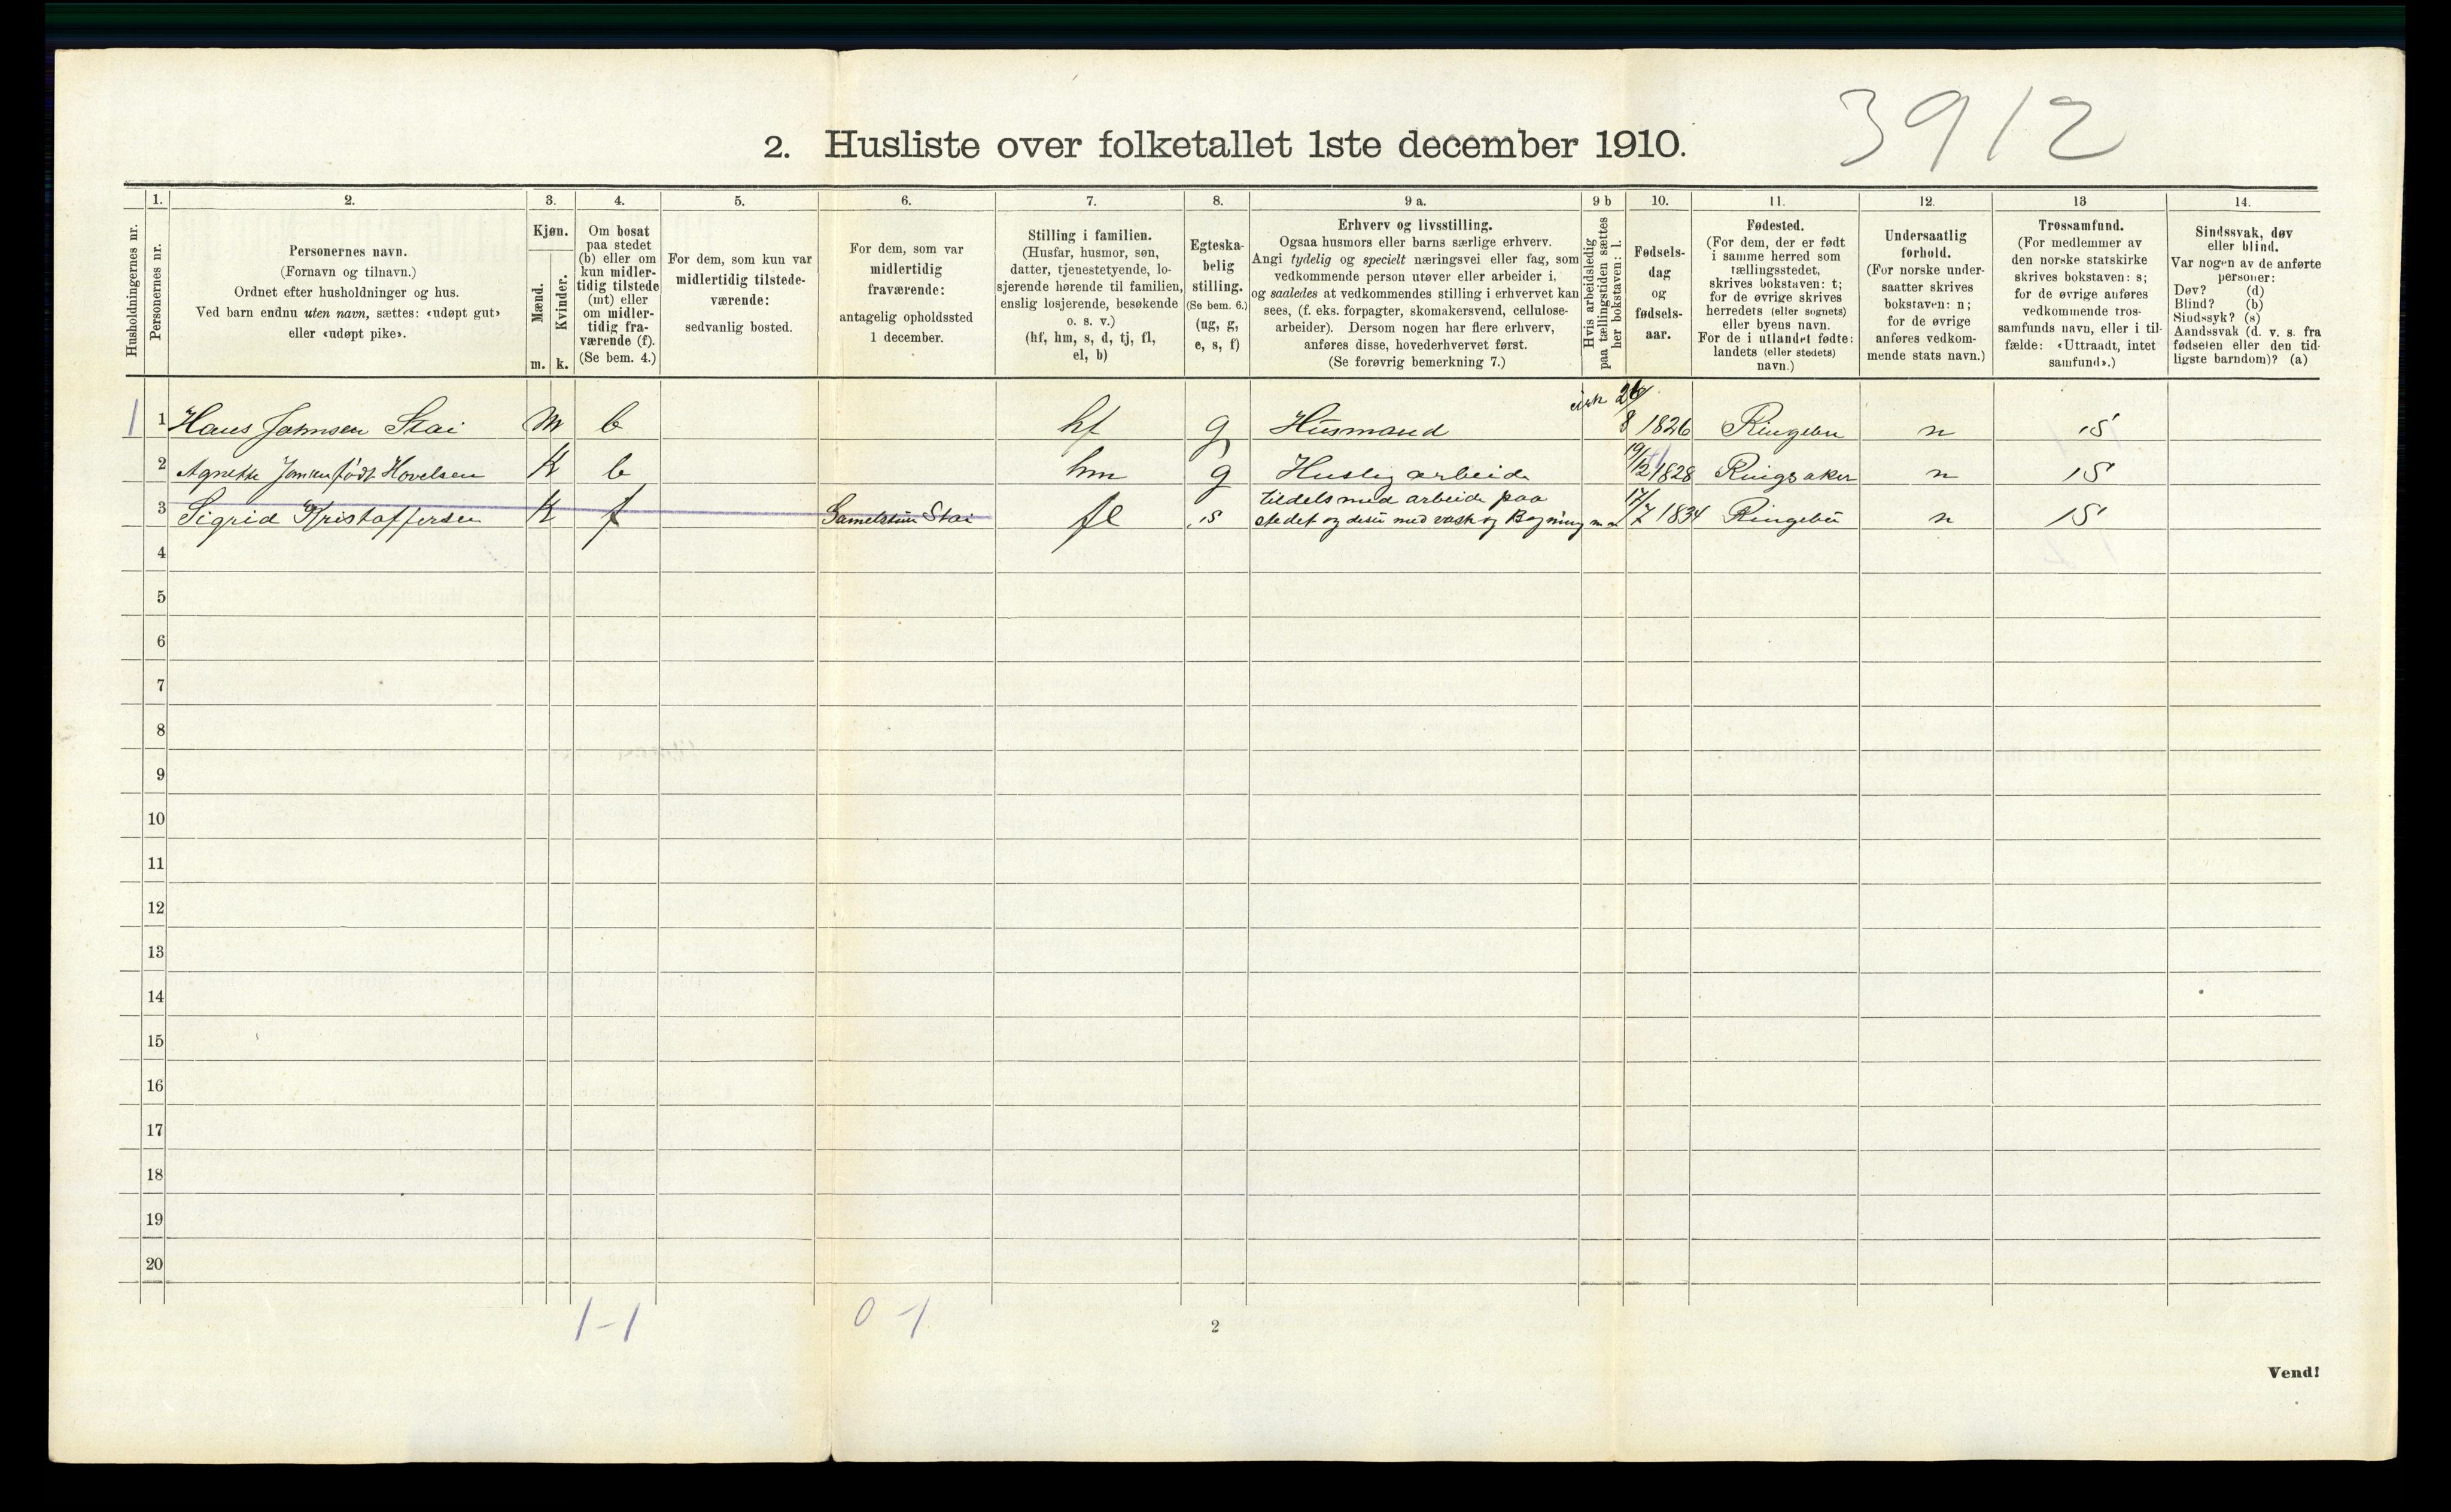 3912
2. Husliste over folketallet 1ste december 1910.
Husholdningernes nr.
1.
Personernes nr.
2.
Personernes navn.
(Fornavn og tilnavn.)
Ordnet efter husholdninger og hus.
Ved barn endnu uten navn, sættes: «udøpt gut»
eller «udøpt pike».
3.
Kjøn.
Mænd.
Kvinder.
m. k.
4.
Om bosat
paa stedet
(b) eller om
kun midler-
tidig tilstede
(mt) eller
om midler-
tidig fra-
værende (f).
(Se bem. 4.)
5.
For dem, som kun var
midlertidig tilstede-
værende:
sedvanlig bosted.
6.
For dem, som var
midlertidig
fraværende:
antagelig opholdssted
1 december.
7.
Stilling i familien.
(Husfar, husmor, søn,
datter, tjenestetyende, lo-
sjerende hørende til familien,
enslig losjerende, besøkende
o. s. v.)
(hf, hm, s, d, tj, fl,
el, b)
8.
Egteska-
belig
stilling.
(Se bem. 6.)
(ug, g,
e, s, f)
9 a.
Erhverv og livsstilling.
Ogsaa husmors eller barns særlige erhverv.
Angi tydelig og specielt næringsvei eller fag, som
vedkommende person utøver eller arbeider i,
og saaledes at vedkommendes stilling i erhvervet kan
sees, (f. eks. forpagter, skomakersvend, cellulose-
arbeider). Dersom nogen har flere erhverv,
anføres disse, hovederhvervet først.
(Se forøvrig bemerkning 7.)
9 b
Hvis arbeidsledig
paa tællingstiden sættes
her bokstaven: l.
10.
Fødsels-
dag
og
fødsels-
aar.
11.
Fødested.
(For dem, der er født
i samme herred som
tællingsstedet,
skrives bokstaven: t;
for de øvrige skrives
herredets (eller sognets)
eller byens navn.
For de i utlandet fødte:
landets (eller stedets)
navn.)
12.
Undersaatlig
forhold.
(For norske under-
saatter skrives
bokstaven: n;
for de øvrige
anføres vedkom-
mende stats navn.)
13
Trossamfund.
(For medlemmer av
den norske statskirke
skrives bokstaven: s;
for de øvrige anføres
vedkommende tros-
samfunds navn, eller i til-
fælde: «Uttraadt, intet
samfund».)
14.
Sindssvak, døv
eller blind.
Var nogen av de anførte
personer:
Døv? (d)
Blind? (b)
Sindssyk? (s)
Aandssvak (d. v. s. fra
fødselen eller den tid-
ligste barndom)? (a)
1 1 Hans Johnsen Stai m b hf g Husmand 26/8 1826 Ringebu n s
2 Agnethe Jonsen født Hovelsen k b hm g Huslig arbeide 19/12 1828 Ringsaker n s
3 Sigrid Kristoffersen k f Gamelstun Stai fl s tildels med arbeide paa
stedet og med vask og 17/7 1834 Ringebu n s
4
5
6
7
8
9
10
11
12
13
14
15
16
17
18
19
20
1-1 0-1
2
Vend!